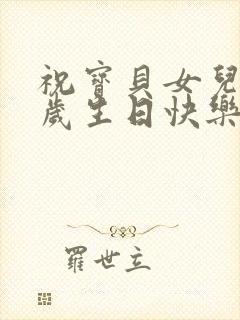 祝寶貝女兒
歲生日快樂
羅世立